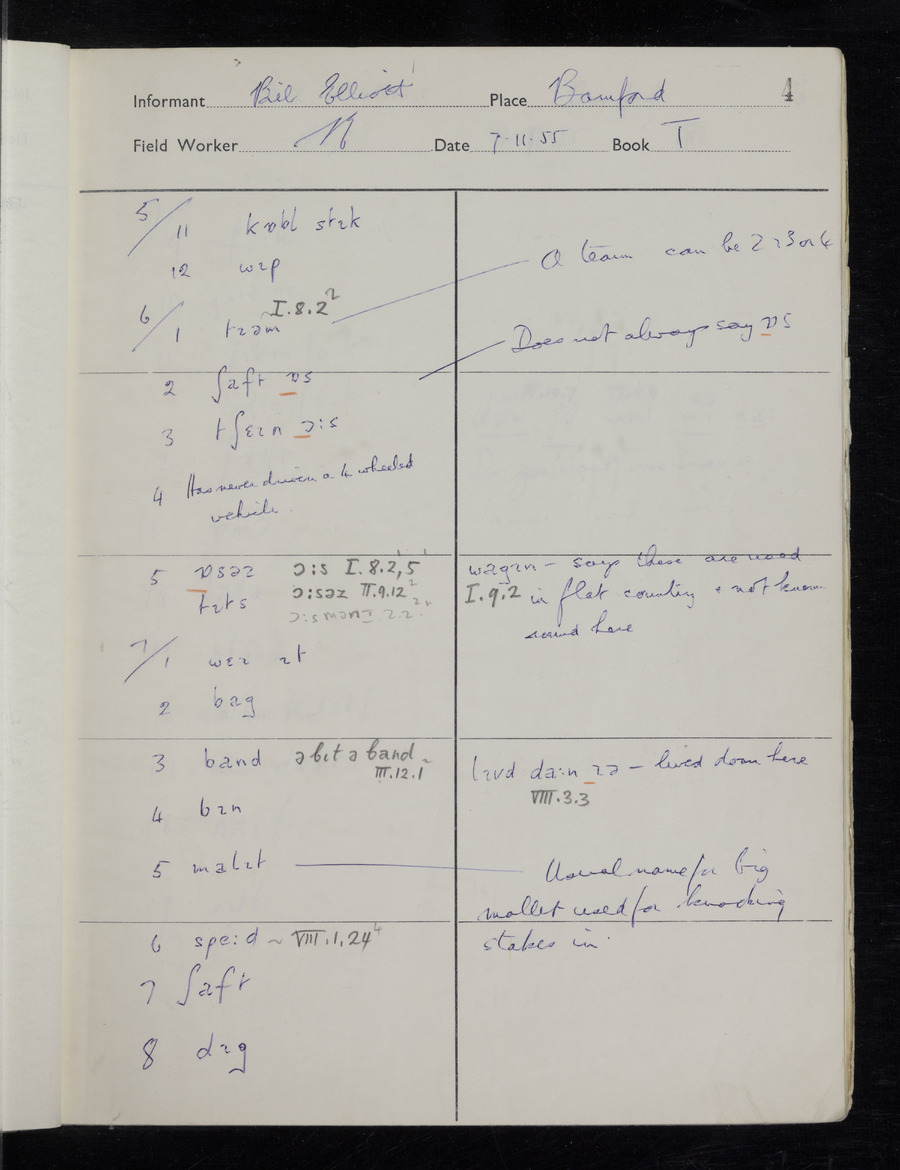 Informant Bill Elliott Place Bamford 4
Field Worker Date 7.11.55 Book I
5/11 kɒbl stɪk
12 wɪp
6/1 tɪəm I.8.2²
A team can be 2 or 3 or 4
2 ʃaft ɒs
Does not always say ɒs
3 tʃɛɪn ɔ:s
4 Has never driven a 4 wheeled
vehicle.
5 ɒsəz ɔ:s I.8.2',5'
tɪts ɔ:səz II.9.12²
ɔ:smən I.2.2
wagɪn – says these are used
I.9.2 in flat country & not known
round here
7/1 wɛɪ ɪt
2 bag
3 band ə bɪt ə band~
III.12.1
lɪvd da:n ɪə – lived down here
VIII.3.3
4 bɪn
5 malɪt
Usual name for big
mallet used for knocking
stakes in.
6 spe:d ~ VIII.1.24⁴
7 ʃaft
8 dɪg